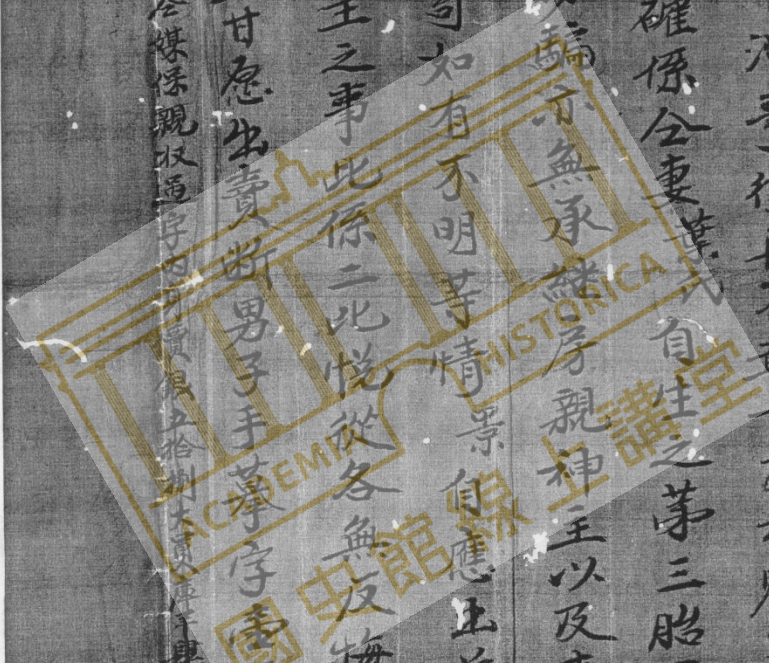 確係仝妻葉氏自生之第三胎
騙亦無承繼房親神主以及
如有不明等情景自應出
主之事此係二比悅從各無反悔
甘愿出賣断男子手摹字壹
仝媒保親收過字内所賣銀五拾捌大員
ACADEMIA HISTORICA
國史館線上講堂